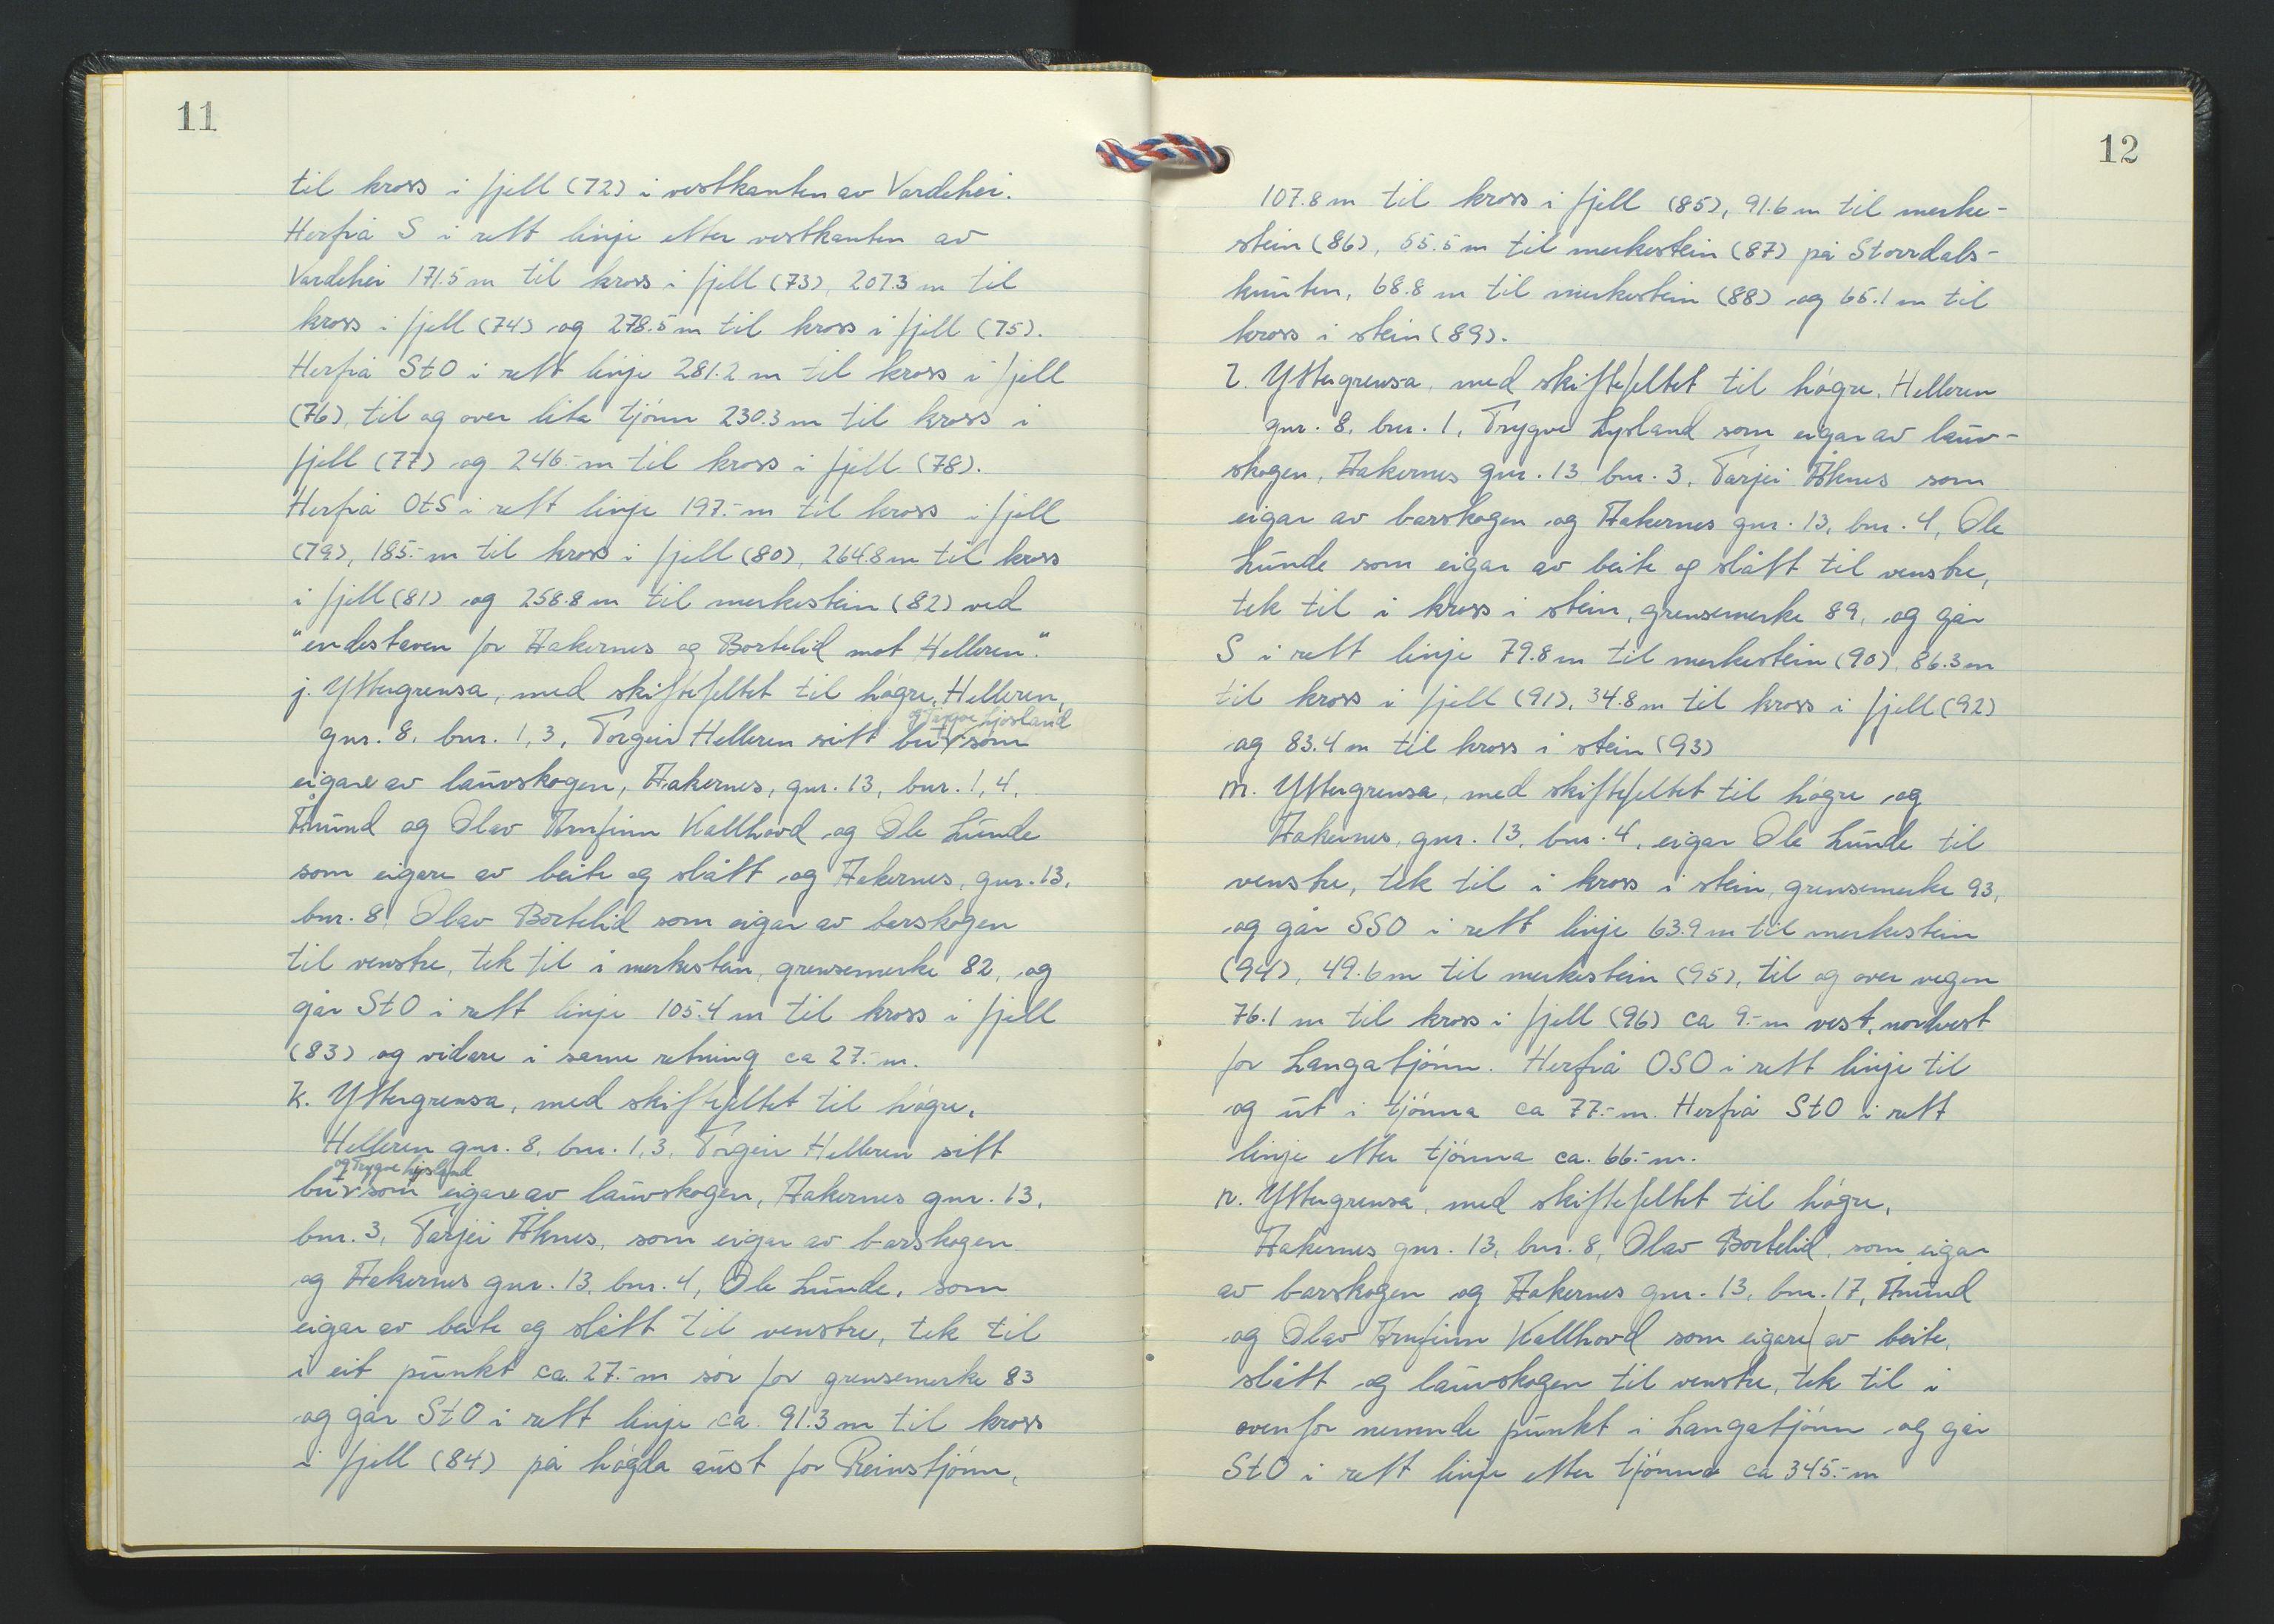 11
til kross i fjell (72) i vestkanten av Vardehei.
Herfrå S i rett linje etter vestkanten av
Vardehei 171.5 m til kross i fjell (73), 207.3 m til
kross i fjell (74) og 278.5 m til kross i fjell (75).
Herfrå StO i rett linje 281.2 m til kross i fjell
(76), til og over lita tjönn 230.3 m til kross i
fjell (77) og 246.- m til kross i fjell (78).
Herfrå OtS i rett linje 197.- m til kross i fjell
(79), 185.- m til kross i fjell (80), 264.8 m til kross
i fjell (81) og 258.8 m til merkestein (82) ved
"endestaven for Aakernes og Bortelid mot Helleren".
j. Yttergrensa, med skiftefeltet til högre, Helleren,
og Trygve Lysland
gnr. 8, bnr. 1, 3, Torgeir Helleren sitt bu som
eigare av lauvskogen, Aakernes, gnr. 13, bnr. 1, 4,
Åmund og Olav Arnfinn Kallhovd og Ole Lunde
som eigare av beite og slått og Aakernes, gnr. 13,
bnr. 8, Olav Bortelid som eigar av barskogen
til venstre, tek til i merkestein, grensemerke 82, og
går StO i rett linje 105.4 m til kross i fjell
(83) og vidare i same retning ca 27.- m.
k. Yttergrensa, med skiftefeltet til högre,
Helleren gnr. 8, bnr. 1, 3, Torgeir Helleren sitt
og Trygve Lysland
bu som eigare av lauvskogen, Aakernes gnr. 13,
bnr. 3, Tarjei Åknes, som eigar av barskogen
og Aakernes gnr. 13, bnr. 4, Ole Lunde, som
eigar av beite og slått til venstre, tek til
i eit punkt ca. 27.- m sör for grensemerke 83
og går StO i rett linje ca. 91.3 m til kross
i fjell (84) på högda aust for Reinstjönn,
12
107.8 m til kross i fjell (85), 91.6 m til merke-
stein (86), 55.5 m til merkestein (87) på Storrdals-
knuten, 68.8 m til merkestein (88) og 65.1 m til
kross i stein (89).
l. Yttergrensa, med skiftefeltet til högre, Helleren
gnr. 8, bnr. 1, Trygve Lysland som eigar av lauv-
skogen, Aakernes gnr. 13 bnr. 3, Tarjei Åknes som
eigar av barskogen og Aakernes gnr. 13, bnr. 4, Ole
Lunde som eigar av beite og slått til venstre,
tek til i kross i stein, grensemerke 89, og går
S i rett linje 79.8 m til merkestein (90), 86.3 m
til kross i fjell (91), 34.8 m til kross i fjell (92)
og 83.4 m til kross i stein (93)
m. Yttergrensa, med skiftefeltet til högre og
Aakernes, gnr. 13, bnr. 4, eigar Ole Lunde til
venstre, tek til i kross i stein, grensemerke 93,
og går SSO i rett linje 63.9 m til merkestein
(94), 49.6 m til merkestein (95), til og over vegen
76.1 m til kross i fjell (96) ca 9.- m vest, nordvest
for Langatjönn. Herfrå OSO i rett linje til
og ut i tjönna ca 77.- m. Herfrå StO i rett
linje etter tjönna ca. 66.- m.
n. Yttergrensa, med skiftefeltet til högre,
Aakernes gnr. 13, bnr. 8, Olav Bortelid, som eigar
av barskogen og Aakernes gnr. 13, bnr. 17, Åmund
og Olav Arnfinn Kallhovd som eigare av beite,
slått og lauvskogen til venstre, tek til i
ovenfor nemnde punkt i Langatjönn og går
StO i rett linje etter tjönna ca 345.- m